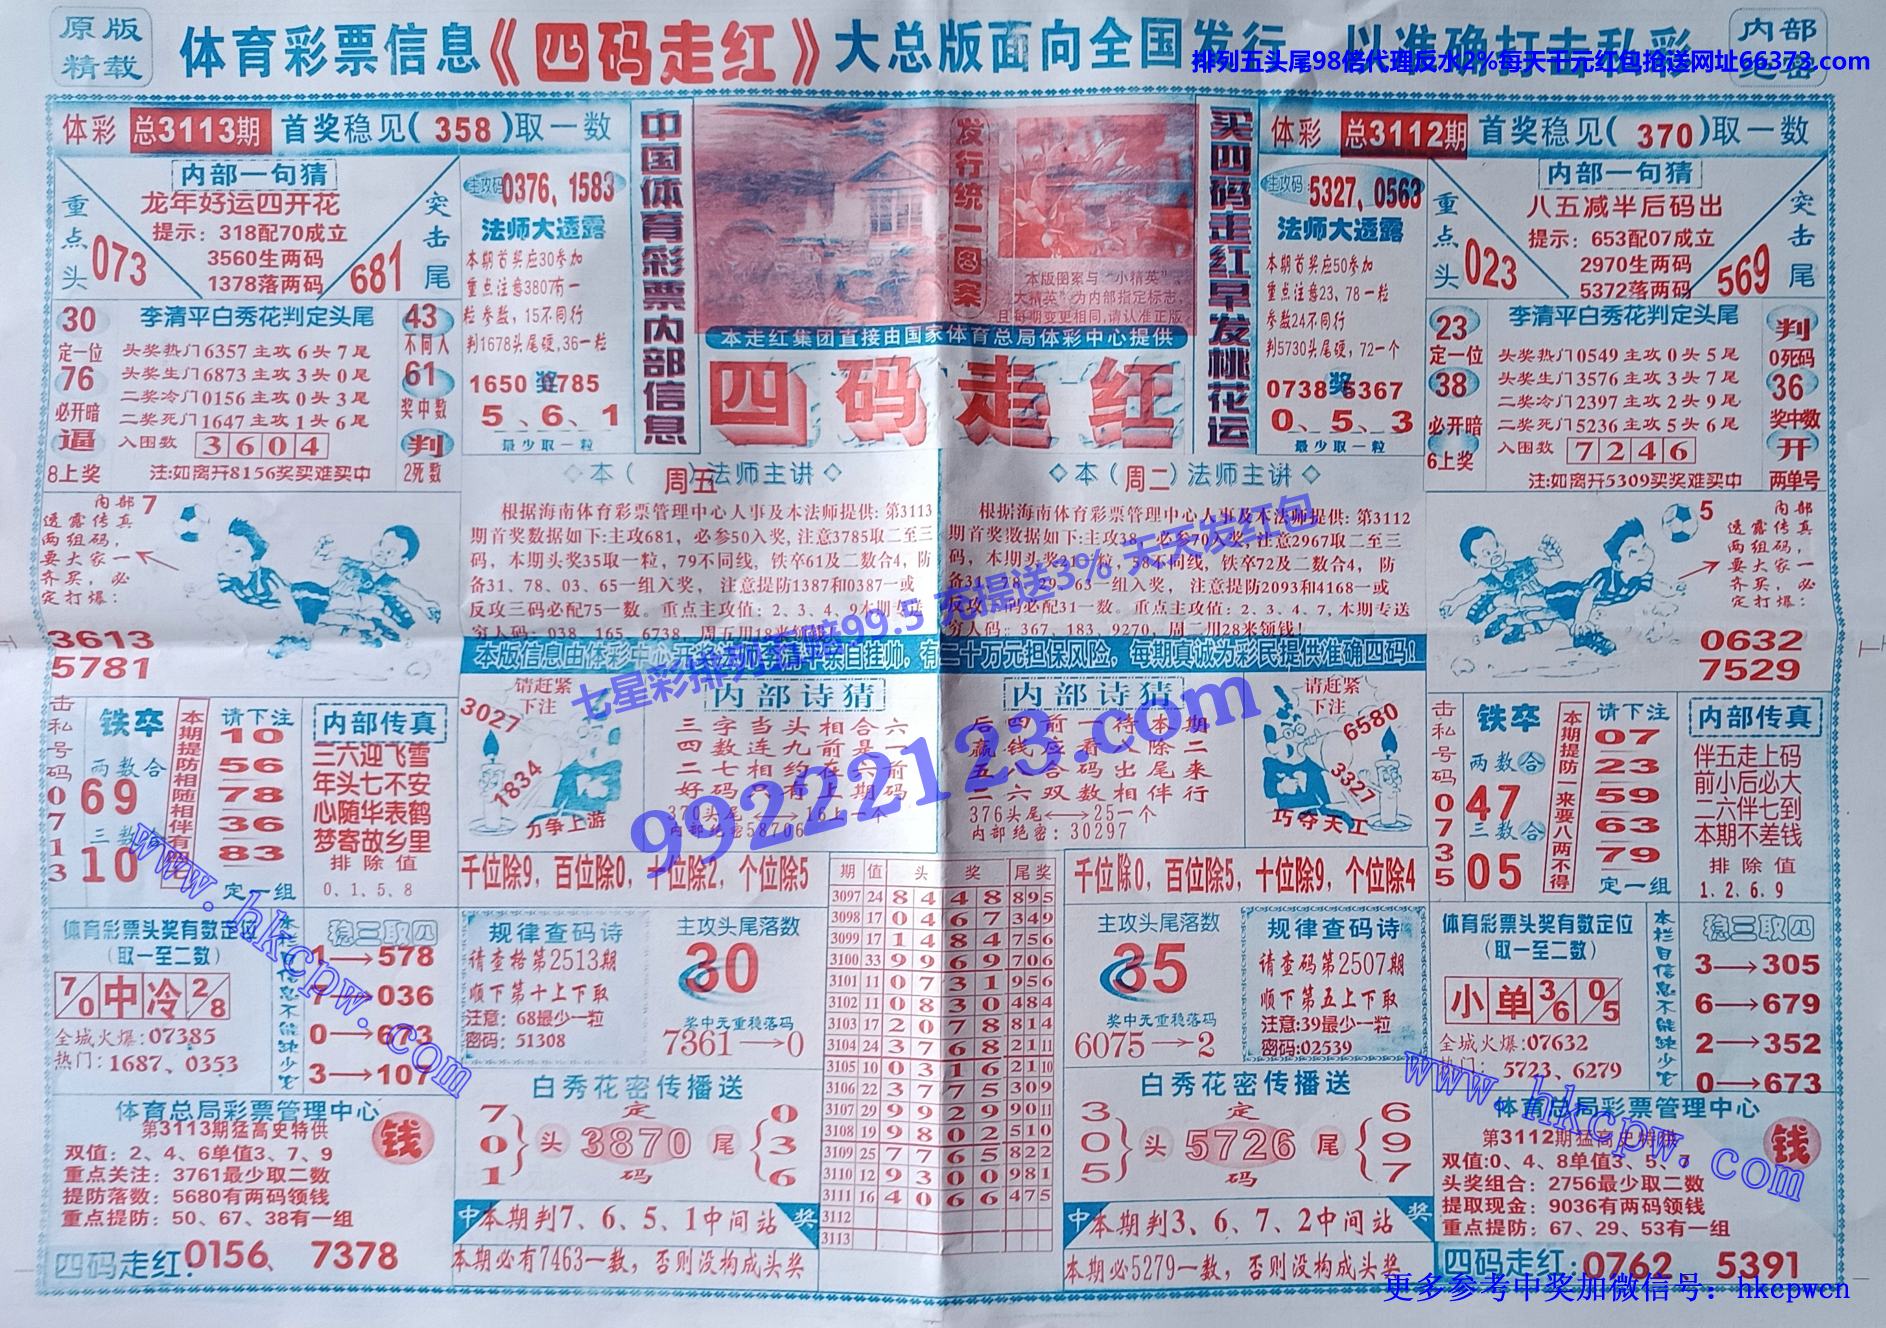 原版
精载
体育彩票信息《四码走红》大总版面向全国发行
内部
排列五头尾98倍代理反水2%每天千元红包抢送网址66373.com
体彩 总3113期 首奖稳见(358)取一数
内部一句猜
龙年好运四开花
提示：318配70成立
3560生两码
1378落两码
重点头
073
突击尾
681
主攻码 0376、1583
法师大透露
本期首奖应30参加
重点注意3807有一
粒参数，15不同行
判1678头尾硬,36一粒
1650 奖 2785
5、6、1
最少取一粒
30
定一位
76
必开暗
逼
8上奖
李清平白秀花判定头尾
头奖热门6357主攻6头7尾
头奖生门6873主攻3头0尾
二奖冷门0156主攻0头3尾
二奖死门1647主攻1头6尾
入围数 3604
注:如离开8156奖买难买中
43
不同入
61
奖中数
判
2死数
中国体育彩票内部信息
发行统一图案
本版图案与“小精英”
大精英”为内部指定标志，
且每期变更相同,请认准正版
本走红集团直接由国家体育总局体彩中心提供
四码走红
买四码走红早发桃花运
体彩 总3112期 首奖稳见(370)取一数
主攻码 5327、0563
法师大透露
本期首奖应50参加
重点注意23、78一粒
参数24不同行
判5730头尾硬，72一个
0738 奖 5367
0、5、3
最少取一粒
内部一句猜
八五减半后码出
提示：653配07成立
2970生两码
5372落两码
重点头
023
突击尾
569
23
定一位
38
必开暗
6上奖
李清平白秀花判定头尾
头奖热门0549主攻0头5尾
头奖生门3576主攻3头7尾
二奖冷门2397主攻2头9尾
二奖死门5236主攻5头6尾
入围数 7246
注:如离开5309买奖难买中
判
0死码
36
奖中数
开
两单号
内部 7
透露传真
两组码，
要大家一
齐买，必
定打爆：
3613
5781
◇本（周五）法师主讲◇
根据海南体育彩票管理中心人事及本法师提供: 第3113
期首奖数据如下:主攻681，必参50入奖, 注意3785取二至三
码，本期头奖35取一粒，79不同线，铁卒61及二数合4，防
备31、78、03、65一组入奖， 注意提防1387和0387一或
反攻三码必配75一数。重点主攻值：2、3、4、9本期专送
穷人码：038、165、6738，周五用18来领钱!
◇本（周二）法师主讲◇
根据海南体育彩票管理中心人事及本法师提供: 第3112
期首奖数据如下:主攻38，必参70入奖, 注意2967取二至三
码，本期头奖21一粒，58不同线，铁卒72及二数合4，防
备31、78、29、63一组入奖， 注意提防2093和4168一或
反攻三码必配31一数。重点主攻值：2、3、4、7, 本期专送
穷人码：367、183、9270，周二用28来领钱!
内部 5
透露传真
两组码，
要大家一
齐买，必
定打爆：
0632
7529
七星彩排列五赔99.5 充提送3% 天天发红包
99222123.com
击私号码0713
铁卒
两数合
69
三数合
10
本期提防相随相伴有
请下注
10
56
78
36
83
定一组
内部传真
三六迎飞雪
年头七不安
心随华表鹤
梦寄故乡里
排除值
0、1、5、8
请赶紧
下注
3027
1834
力争上游
内部诗猜
三字当头相合六
四数连九前是一
370头尾⟷16上一个
内部绝密58706
千位除9，百位除0，十位除2，个位除5
内部诗猜
五六合码出尾来
二六双数相伴行
376头尾⟷25一个
内部绝密：30297
请赶紧
下注
6580
3327
巧夺天工
千位除0，百位除5，十位除9，个位除4
击私号码0735
铁卒
两数合
47
三数合
05
本期提防一来要八两不得
请下注
07
23
59
63
79
定一组
内部传真
伴五走上码
前小后必大
二六伴七到
本期不差钱
排除值
1、2、6、9
体育彩票头奖有数定位
(取一至二数)
7/0 中 冷 2/8
全城火爆：07385
热门：1687、0353
稳三取四
1→578
036
0→673
3→107
规律查码诗
请查格第2513期
顺下第十上下取
注意：68最少一粒
密码：51308
主攻头尾落数
30
奖中无重稳落码
7361→0
期 值 头 奖 尾奖
3097 24 8 4 4 8 895
3098 17 0 4 6 7 349
3099 17 1 4 8 4 756
3100 33 9 9 6 9 706
3101 11 0 7 3 1 956
3102 11 0 8 3 0 484
3103 17 2 0 7 8 814
3104 24 3 7 6 8 2111
3105 10 0 3 1 6 2110
3106 22 3 7 7 5 309
3107 29 9 9 2 9 9011
3108 19 9 8 0 2 510
3109 25 7 7 6 5 822
3110 12 9 3 0 0 981
3111 16 4 0 6 6 475
3112
3113
主攻头尾落数
35
奖中无重稳落码
6075→2
规律查码诗
请查码第2507期
顺下第五上下取
注意:39最少一粒
密码:02539
体育彩票头奖有数定位
(取一至二数)
小 单 3/6 0/5
全城火爆:07632
热门： 5723、6279
本栏目信息不能缺少它
稳三取四
3→305
6→679
2→352
0→673
www.hkcpw.com
www.hkcpw.com
体育总局彩票管理中心
第3113期猛高史特供
钱
双值：2、4、6单值3、7、9
重点关注：3761最少取二数
提防落数：5680有两码领钱
重点提防：50、67、38有一组
四码走红:0156、7378
白秀花密传播送
7
0
1
头
定
3870
码
尾
0
3
6
中 本期判7、6、5、1中间站 奖
本期必有7463一数，否则没构成头奖
白秀花密传播送
3
0
5
头
定
5726
码
尾
6
9
7
中 本期判3、6、7、2中间站 奖
本期必5279一数，否则没构成头奖
体育总局彩票管理中心
钱
双值:0、4、8单值3、5、7
头奖组合：2756最少取二数
提取现金：9036有两码领钱
重点提防：67、29、53有一组
四码走红:0762 5391
更多参考中奖加微信号：hkcpwcn